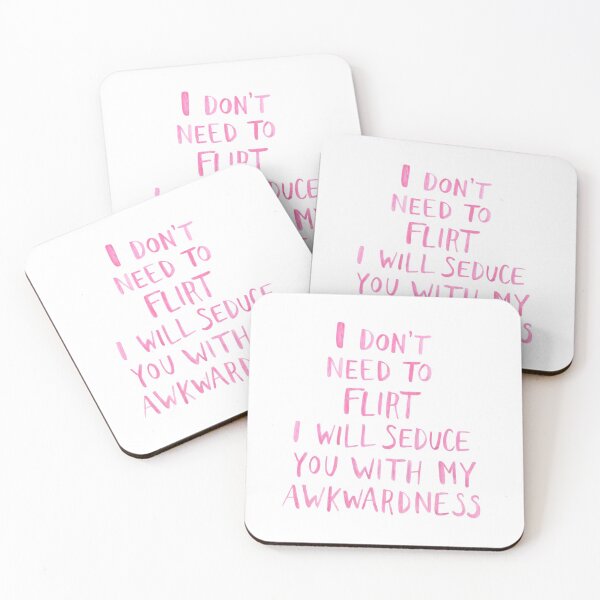 I DON'T
NEED TO
FLIRT
I DON'T
NEED TO
FLIRT
I WILL SEDUCE
YOU WITH MY
I DON'T
NEED TO
FLIRT
I WILL SEDUCE
YOU WITH
AWKWARDNESS
I DON'T
NEED TO
FLIRT
I WILL SEDUCE
YOU WITH MY
AWKWARDNESS